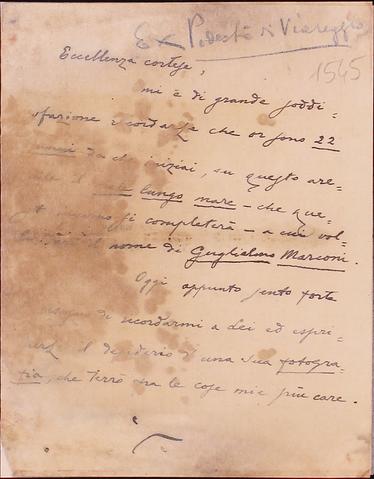 Ex Podestà di Viareggio
1545
Eccellenza cortese,
mi è di grande soddi=
sfazione ricordarLe che or sono 22
da che iniziai, su questo are=
il lungo mare - che que=
si completerà - a cui vol=
il nome di Guglielmo Marconi.
Oggi appunto sento forte
di ricordarmi a Lei ed espri=
il desiderio di una Sua fotogra=
fia, che terrò tra le cose mie più care.